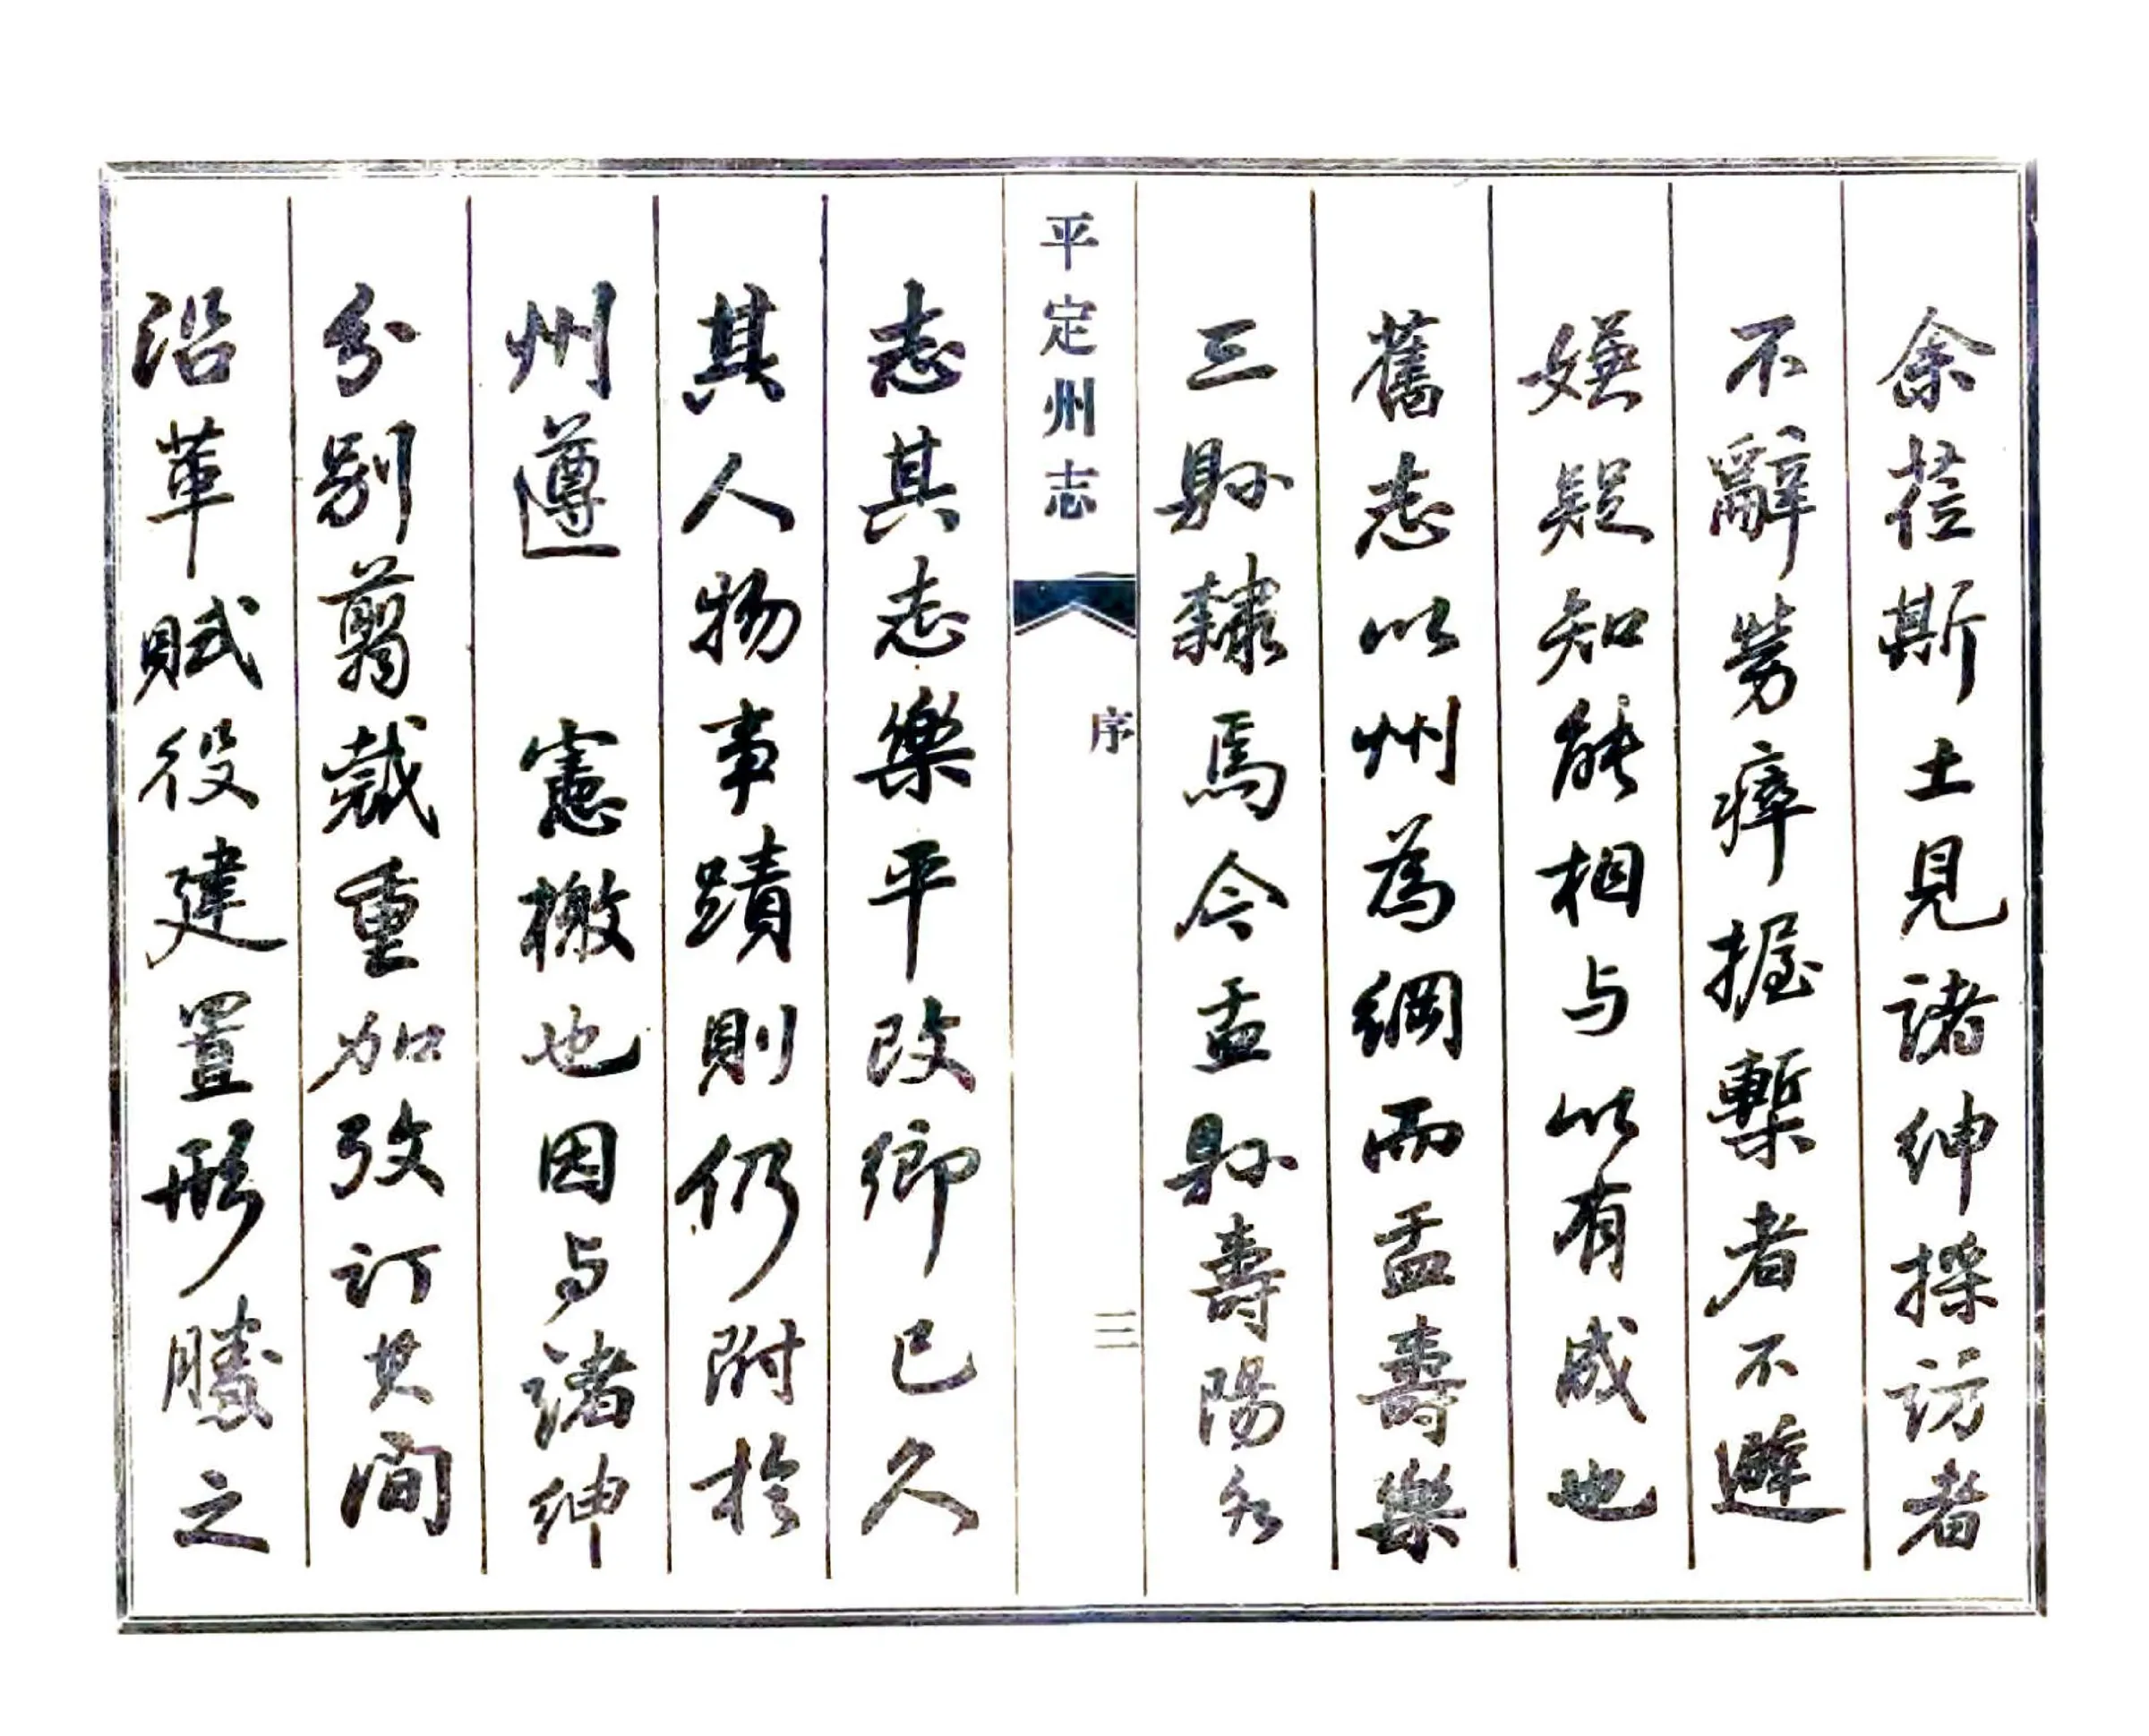 余莅斯土見諸紳採訪者
不辭勞瘁握槧者不避
嫌疑知能相与以有成也
舊志以州為綱而盂壽樂
三縣隸焉今盂縣壽陽各
平定州志
序
三
志其志樂平改鄉已久
其人物事蹟則仍附於
州遵 憲檄也因与諸紳
分別蒭裁重加攷訂其間
沿革賦役建置形勝之